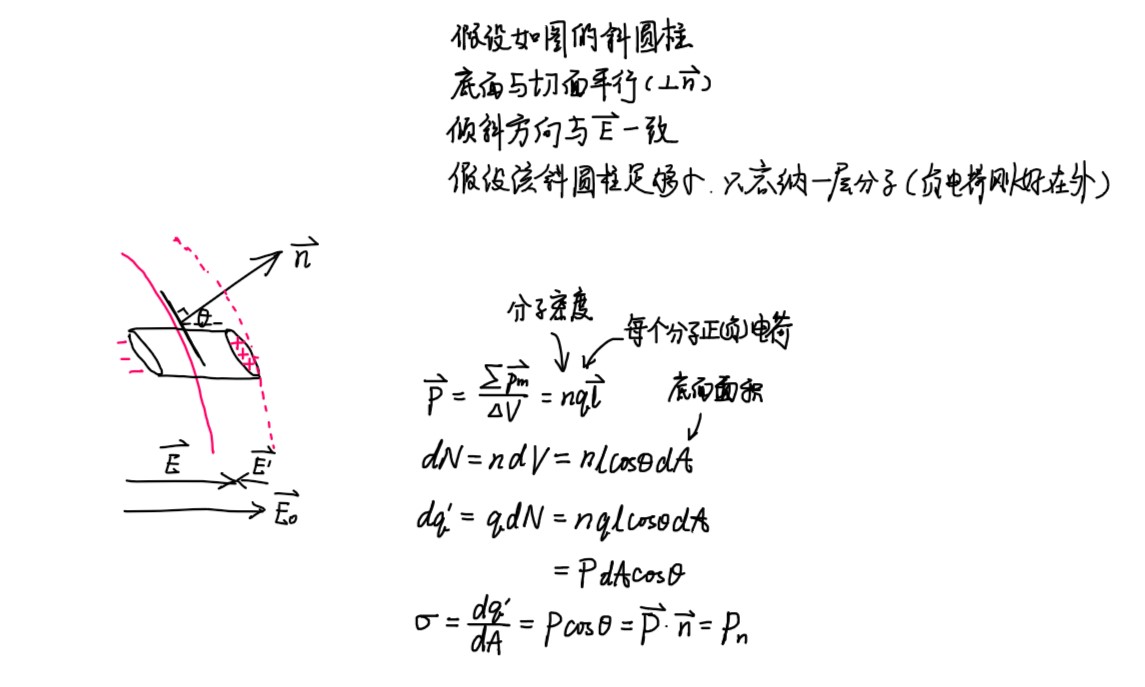 假设如图的斜圆柱
底面与切面平行(⊥n⃗)
倾斜方向与E⃗一致
假设该斜圆柱足够小.只容纳一层分子(负电荷刚好在外)
n⃗
θ
分子密度
每个分子正(负)电荷
P⃗ = Σp⃗m/ΔV = nql⃗
底面面积
- - -
+ + + +
dN = n dV = nlcosθdA
E⃗ E⃗'
E⃗₀
dq' = qdN = nqlcosθdA
= PdAcosθ
σ = dq'/dA = Pcosθ = P⃗·n⃗ = Pn